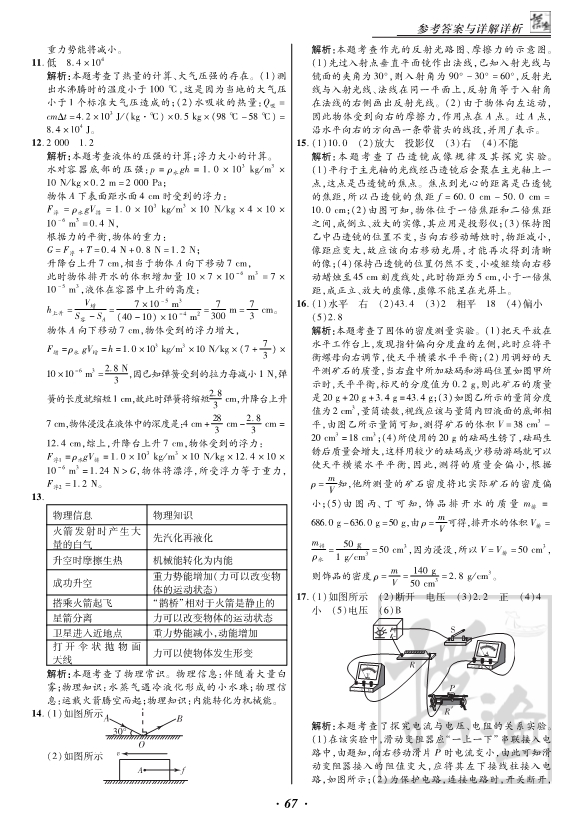 参考答案与详解详析
重力势能将减小。
11. 低　8.4×10⁴
解析:本题考查了热量的计算、大气压强的存在。(1)测
出水沸腾时的温度小于 100 ℃,这是因为当地的大气压
小于 1 个标准大气压造成的;(2)水吸收的热量:Q吸 =
cmΔt = 4.2×10³ J/(kg·℃)×0.5 kg×(98 ℃ -58 ℃) =
8.4×10⁴ J。
12. 2 000　1.2
解析:本题考查液体的压强的计算;浮力大小的计算。
水对容器底部的压强:p = ρ水gh = 1.0×10³ kg/m³×
10 N/kg×0.2 m = 2 000 Pa;
物体 A 下表面距水面 4 cm 时受到的浮力:
F浮 = ρ水gV排 = 1.0×10³ kg/m³×10 N/kg×4×10×
10⁻⁶ m³ = 0.4 N,
根据力的平衡,物体的重力:
G = F浮 + T = 0.4 N + 0.8 N = 1.2 N;
升降台上升 7 cm,相当于物体 A 向下移动 7 cm,
此时物体排开水的体积增加量 10×7×10⁻⁶ m³ = 7×
10⁻⁵ m³,液体在容器中上升的高度:
h上升 = V增/(S容 - SA) = 7×10⁻⁵ m³/((40-10)×10⁻⁴ m²) = 7/300 m = 7/3 cm。
物体 A 向下移动 7 cm,物体受到的浮力增大,
F增 = ρ水 gV增 = h = 1.0×10³ kg/m³×10 N/kg×(7+7/3)×
10×10⁻⁶ m³ = 2.8 N/3,因已知弹簧受到的拉力每减小 1 N,弹
簧的长度就缩短 1 cm,故此时弹簧将缩短2.8/3 cm,升降台上升
7 cm,物体浸没在液体中的深度是:4 cm + 28/3 cm - 2.8/3 cm =
12.4 cm,综上,升降台上升 7 cm,物体受到的浮力:
F浮1 = ρ水gV排 = 1.0×10³ kg/m³×10 N/kg×12.4×10×
10⁻⁶ m³ = 1.24 N > G,物体将漂浮,所受浮力等于重力,
F浮2 = 1.2 N。
13.
物理信息　物理知识
火箭发射时产生大
量的白气　先汽化再液化
升空时摩擦生热　机械能转化为内能
成功升空　重力势能增加(力可以改变物
体的运动状态)
搭乘火箭起飞　“鹊桥”相对于火箭是静止的
星箭分离　力可以改变物体的运动状态
卫星进入近地点　重力势能减小,动能增加
打开伞状抛物面
天线　力可以使物体发生形变
解析:本题考查了物理常识。物理信息:伴随着大量白
雾;物理知识:水蒸气遇冷液化形成的小水珠;物理信
息:运载火箭腾空而起;物理知识:内能转化为机械能。
14. (1)如图所示
A
B
30°
O
(2)如图所示
v
A
f
解析:本题考查作光的反射光路图、摩擦力的示意图。
(1)先过入射点垂直平面镜作出法线,已知入射光线与
镜面的夹角为 30°,则入射角为 90° - 30° = 60°,反射光
线与入射光线、法线在同一平面上,反射角等于入射角
在法线的右侧画出反射光线。(2)由于物体向左运动,
因此物体受到向右的摩擦力,作用点在 A 点。过 A 点,
沿水平向右的方向画一条带箭头的线段,并用 f 表示。
15. (1)10.0　(2)放大　投影仪　(3)右　(4)不能
解析:本题考查了凸透镜成像规律及其探究实验。
(1)平行于主光轴的光线经凸透镜后会聚在主光轴上一
点,这点是凸透镜的焦点。焦点到光心的距离是凸透镜
的焦距,所以凸透镜的焦距 f = 60.0 cm - 50.0 cm =
10.0 cm;(2)由图可知,物体位于一倍焦距和二倍焦距
之间,成倒立、放大的实像,其应用是投影仪;(3)保持图
乙中凸透镜的位置不变,当向右移动蜡烛时,物距减小,
像距应变大,故应该向右移动光屏,才能再次得到清晰
的像;(4)保持凸透镜的位置仍然不变,小峻继续向右移
动蜡烛至45 cm 刻度线处,此时物距为 5 cm,小于一倍焦
距,成正立、放大的虚像,虚像不能呈在光屏上。
16. (1)水平　右　(2)43.4　(3)2　相平　18　(4)偏小
(5)2.8
解析:本题考查了固体的密度测量实验。(1)把天平放在
水平工作台上,发现指针偏向分度盘的左侧,此时应将平
衡螺母向右调节,使天平横梁水平平衡;(2)用调好的天
平测矿石的质量,当右盘中所加砝码和游码位置如图甲所
示时,天平平衡,标尺的分度值为 0.2 g,则此矿石的质量
是20 g + 20 g + 3.4 g = 43.4 g;(3)如图乙所示的量筒分度
值为 2 cm³,量筒读数,视线应该与量筒内凹液面的底部相
平,由图乙所示量筒可知,测得矿石的体积 V = 38 cm³ -
20 cm³ = 18 cm³;(4)所使用的 20 g 的砝码生锈了,砝码生
锈后质量会增大,这样用较少的砝码或少移动游码就可以
使天平横梁水平平衡,因此,测得的质量会偏小,根据
ρ = m/V知,他所测量的矿石密度将比实际矿石的密度偏
小;(5)由图丙、丁可知,饰品排开水的质量 m排 =
686.0 g - 636.0 g = 50 g,由 ρ = m/V可得,排开水的体积 V排 =
m排/ρ水 = 50 g/(1 g/cm³) = 50 cm³,因为浸没,所以 V = V排 = 50 cm³,
则饰品的密度 ρ = m/V = 140 g/50 cm³ = 2.8 g/cm³。
17. (1)如图所示　(2)断开　电压　(3)2.2　正　(4)4
小　(5)电压　(6)B
S
R
P
R′
解析:本题考查了探究电流与电压、电阻的关系实验。
(1)在该实验中,滑动变阻器应“一上一下”串联接入电
路中,由题知,向右移动滑片 P 时电流变小,由此可知滑
动变阻器接入的阻值变大,应将其左下接线柱接入电
路,如图所示;(2)为保护电路,连接电路时,开关断开,
· 67 ·